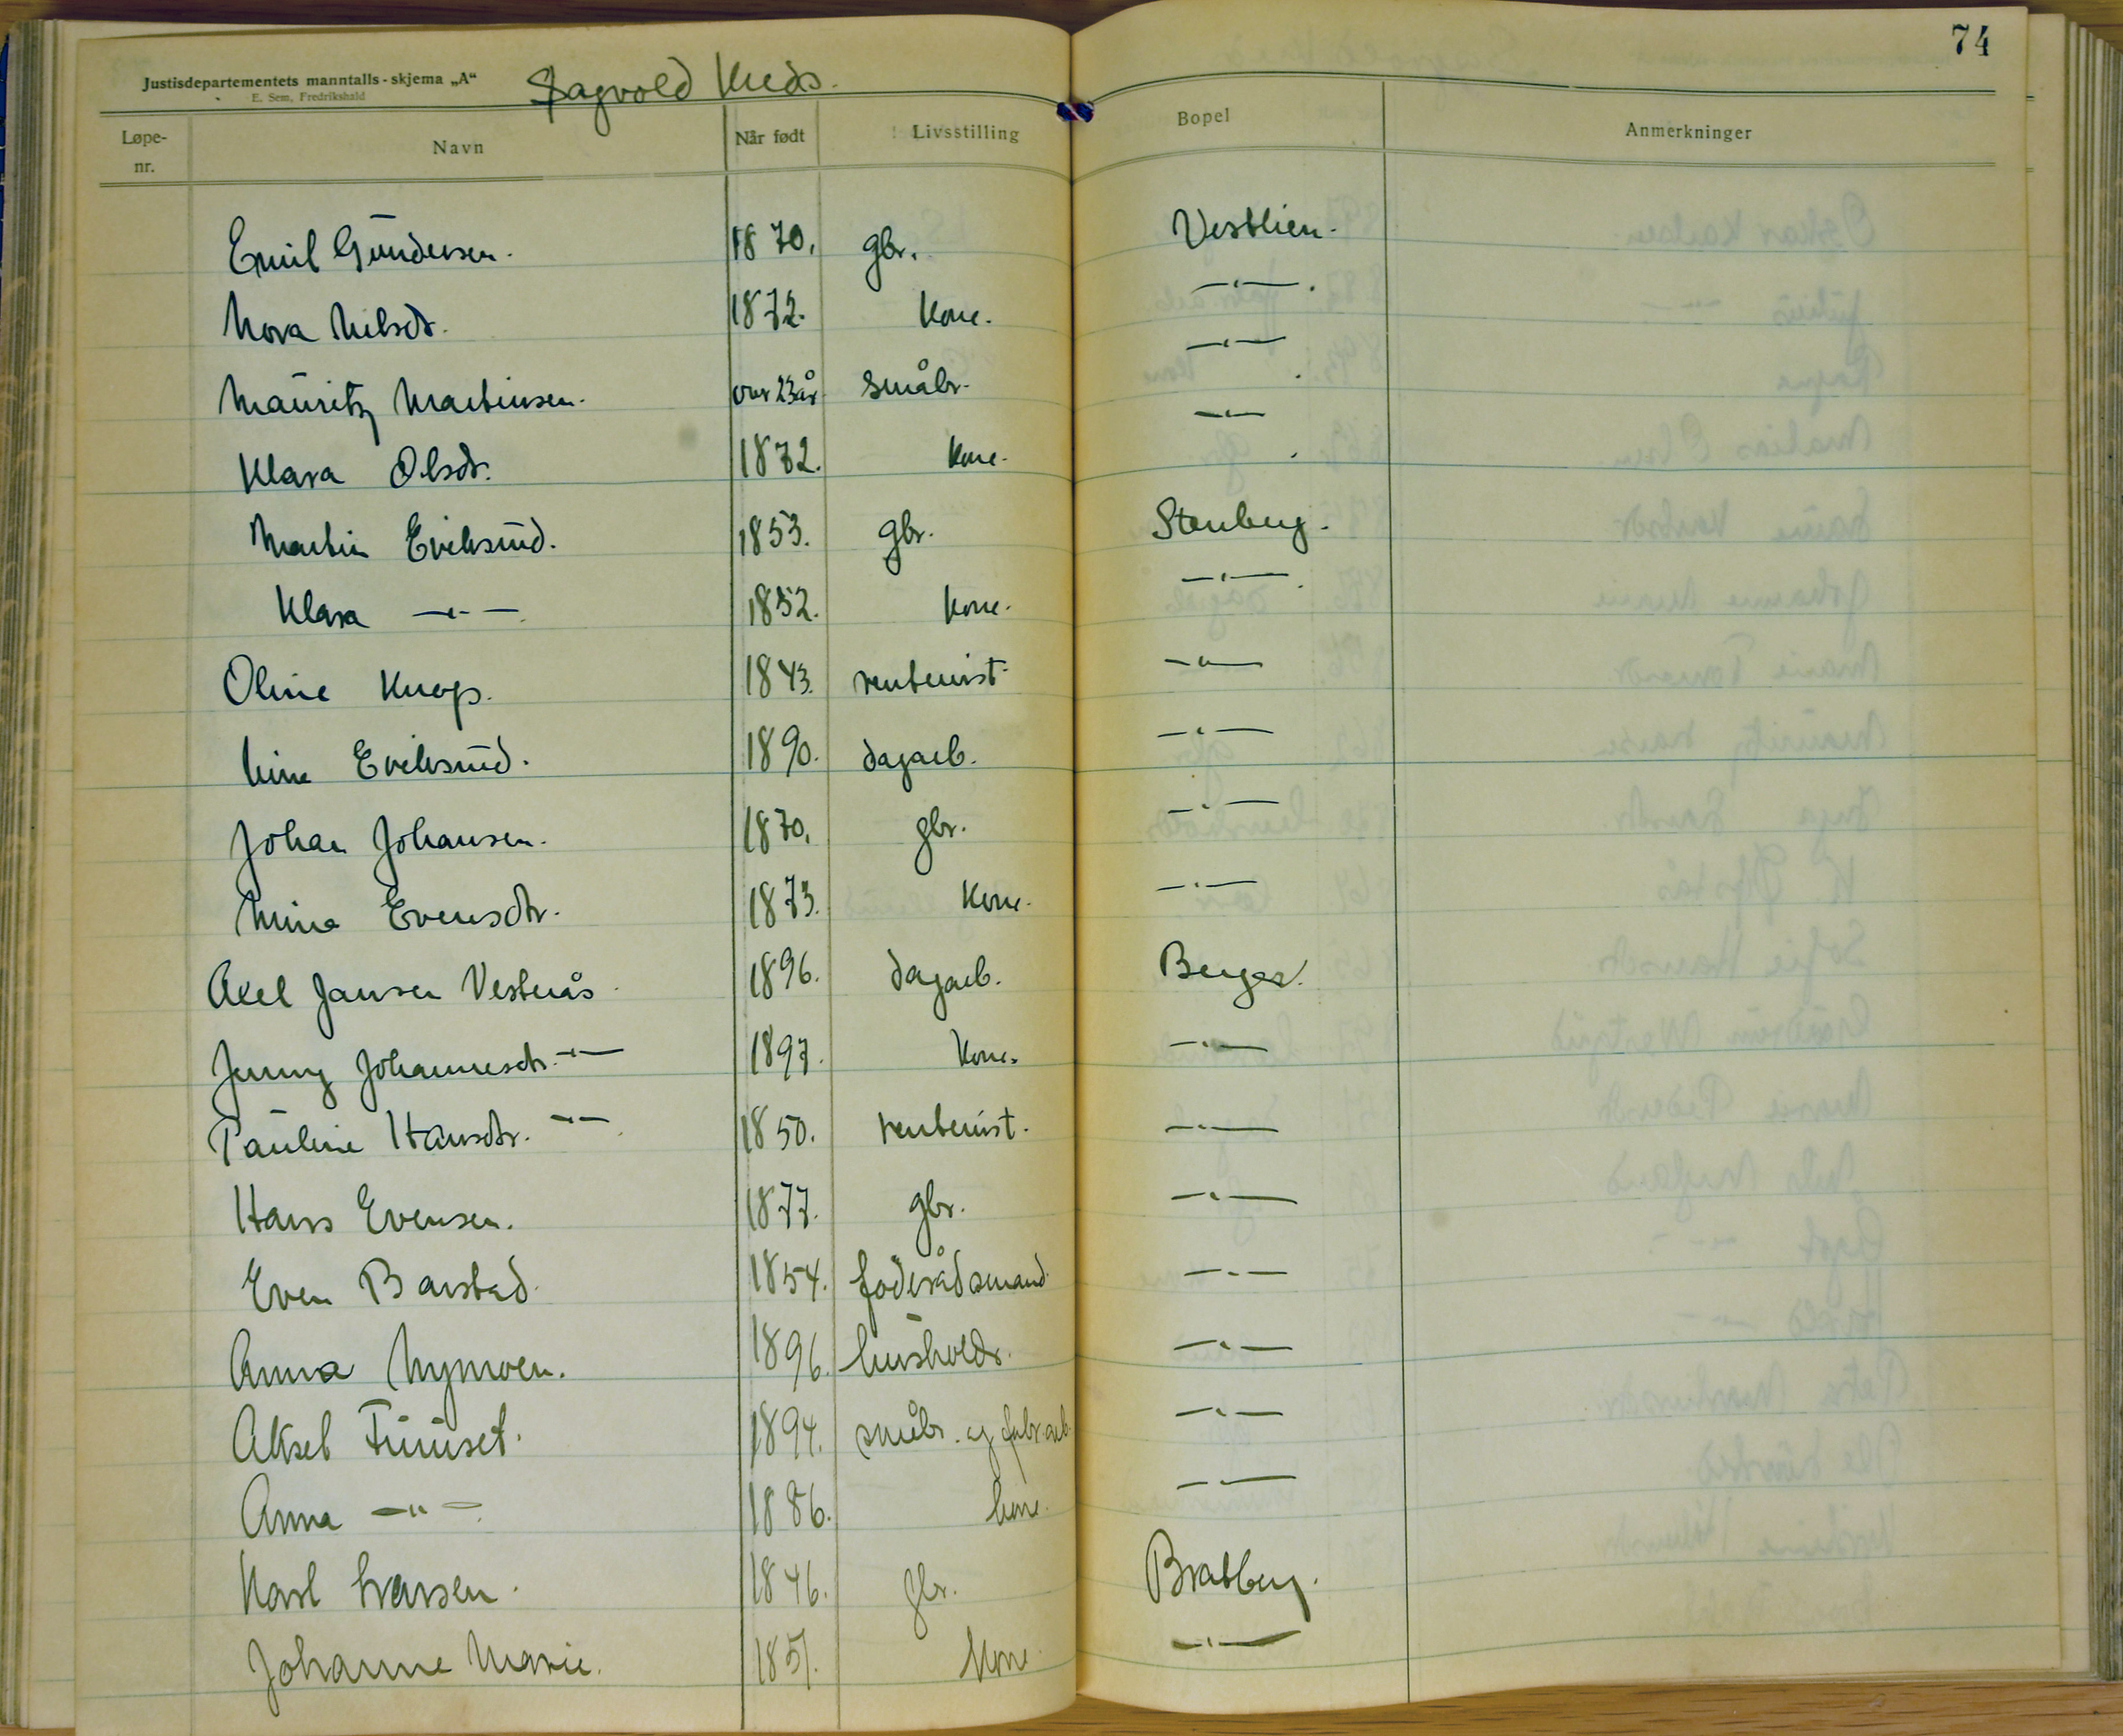 74
Justisdepartementets manntalls-skjema „A“ Sagvold Kreds.
E. Sem, Fredrikshald
Løpe-nr. Navn Når født Livsstilling Bopel Anmerkninger
Emil Gundersen. 1870. gbr. Vestlien.
Nora Nilsdr. 1872. Kone. —"—.
Mauritz Martinsen. over 23 år småbr. —"—
Klara Olsdr. 1872. Kone. —"—
Martin Eriksrud. 1853. gbr. Stenberg.
Klara —"— 1852. Kone. —"—
Oline Knop. 1843. rentenist —"—
Line Eriksrud. 1890. dagarb. —"—
Johan Johansen. 1870. gbr. —"—
Mina Evensdtr. 1873. Kone. —"—
Axel Jansen Vesterås 1896. dagarb. Berger.
Jenny Johannesdtr. —"— 1897. Kone. —"—
Pauline Hansdtr. —"— 1850. rentenist. —"—
Hans Evensen. 1877. gbr. —"—
Even Barstad 1854. föderådsmand. —"—
Anna Nymoen. 1896. husholdr. —"—
Aksel Furuset. 1894. småbr. og fabr.arb. —"—
Anna —"— 1886. kone. —"—
Karl Larsen. 1846. gbr. Bratberg.
Johanne Marie. 1851. Kone —"—